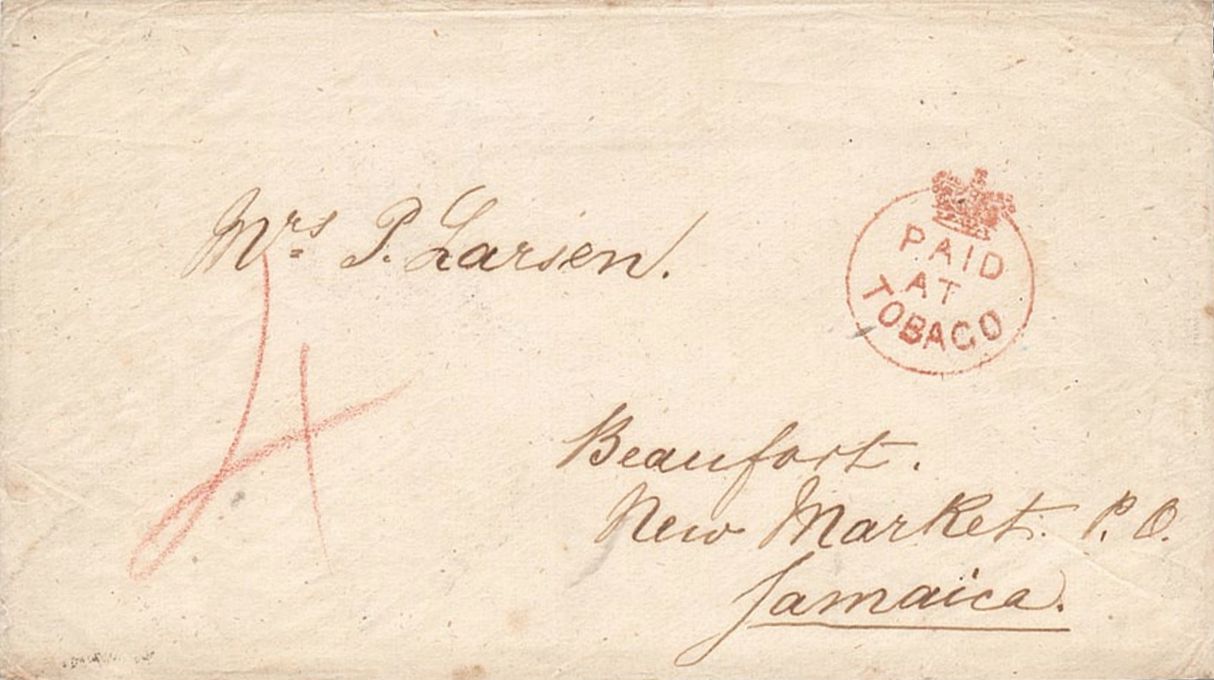 Mrs P. Larsen.
PAID
AT
TOBAGO
4
Beaufort.
New Market. P. O.
Jamaica.